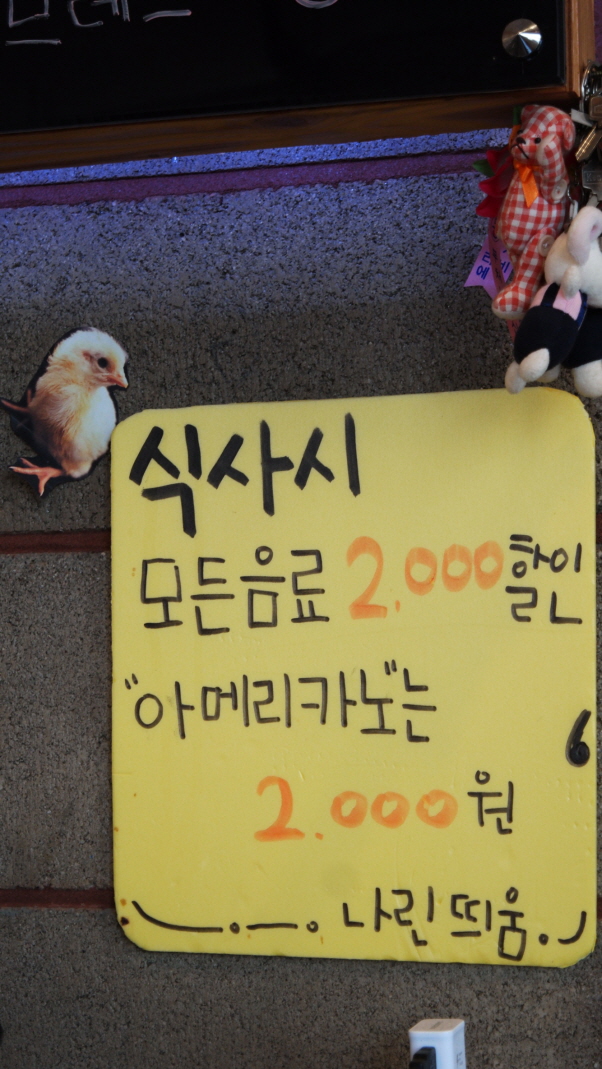 식사시
모든음료 2.000할인
"아메리카노"는
2.000원
나린띄움.